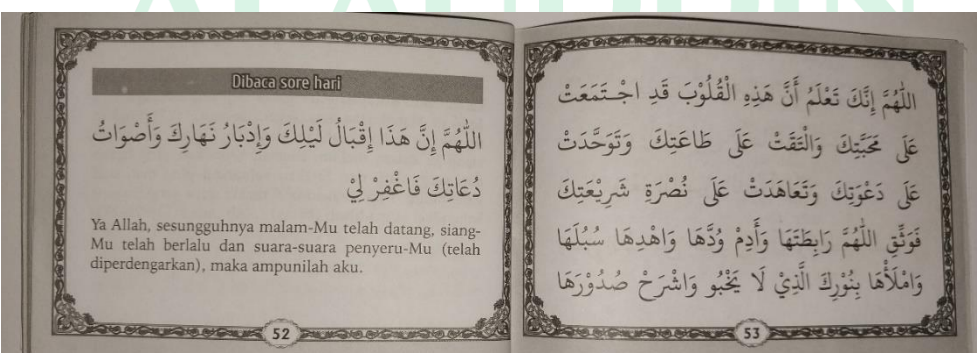 Dibaca sore hari
اللّٰهُمَّ إِنَّ هَذَا إِقْبَالُ لَيْلِكَ وَإِدْبَارُ نَهَارِكَ وَأَصْوَاتُ
دُعَاتِكَ فَاغْفِرْ لِيْ
Ya Allah, sesungguhnya malam-Mu telah datang, siang-
Mu telah berlalu dan suara-suara penyeru-Mu (telah
diperdengarkan), maka ampunilah aku.
52
اللّٰهُمَّ إِنَّكَ تَعْلَمُ أَنَّ هَذِهِ الْقُلُوْبَ قَدِ اجْتَمَعَتْ
عَلَى مَحَبَّتِكَ وَالْتَقَتْ عَلَى طَاعَتِكَ وَتَوَحَّدَتْ
عَلَى دَعْوَتِكَ وَتَعَاهَدَتْ عَلَى نُصْرَةِ شَرِيْعَتِكَ
فَوَثِّقِ اللّٰهُمَّ رَابِطَتَهَا وَأَدِمْ وُدَّهَا وَاهْدِهَا سُبُلَهَا
وَامْلَأْهَا بِنُوْرِكَ الَّذِيْ لَا يَخْبُو وَاشْرَحْ صُدُوْرَهَا
53